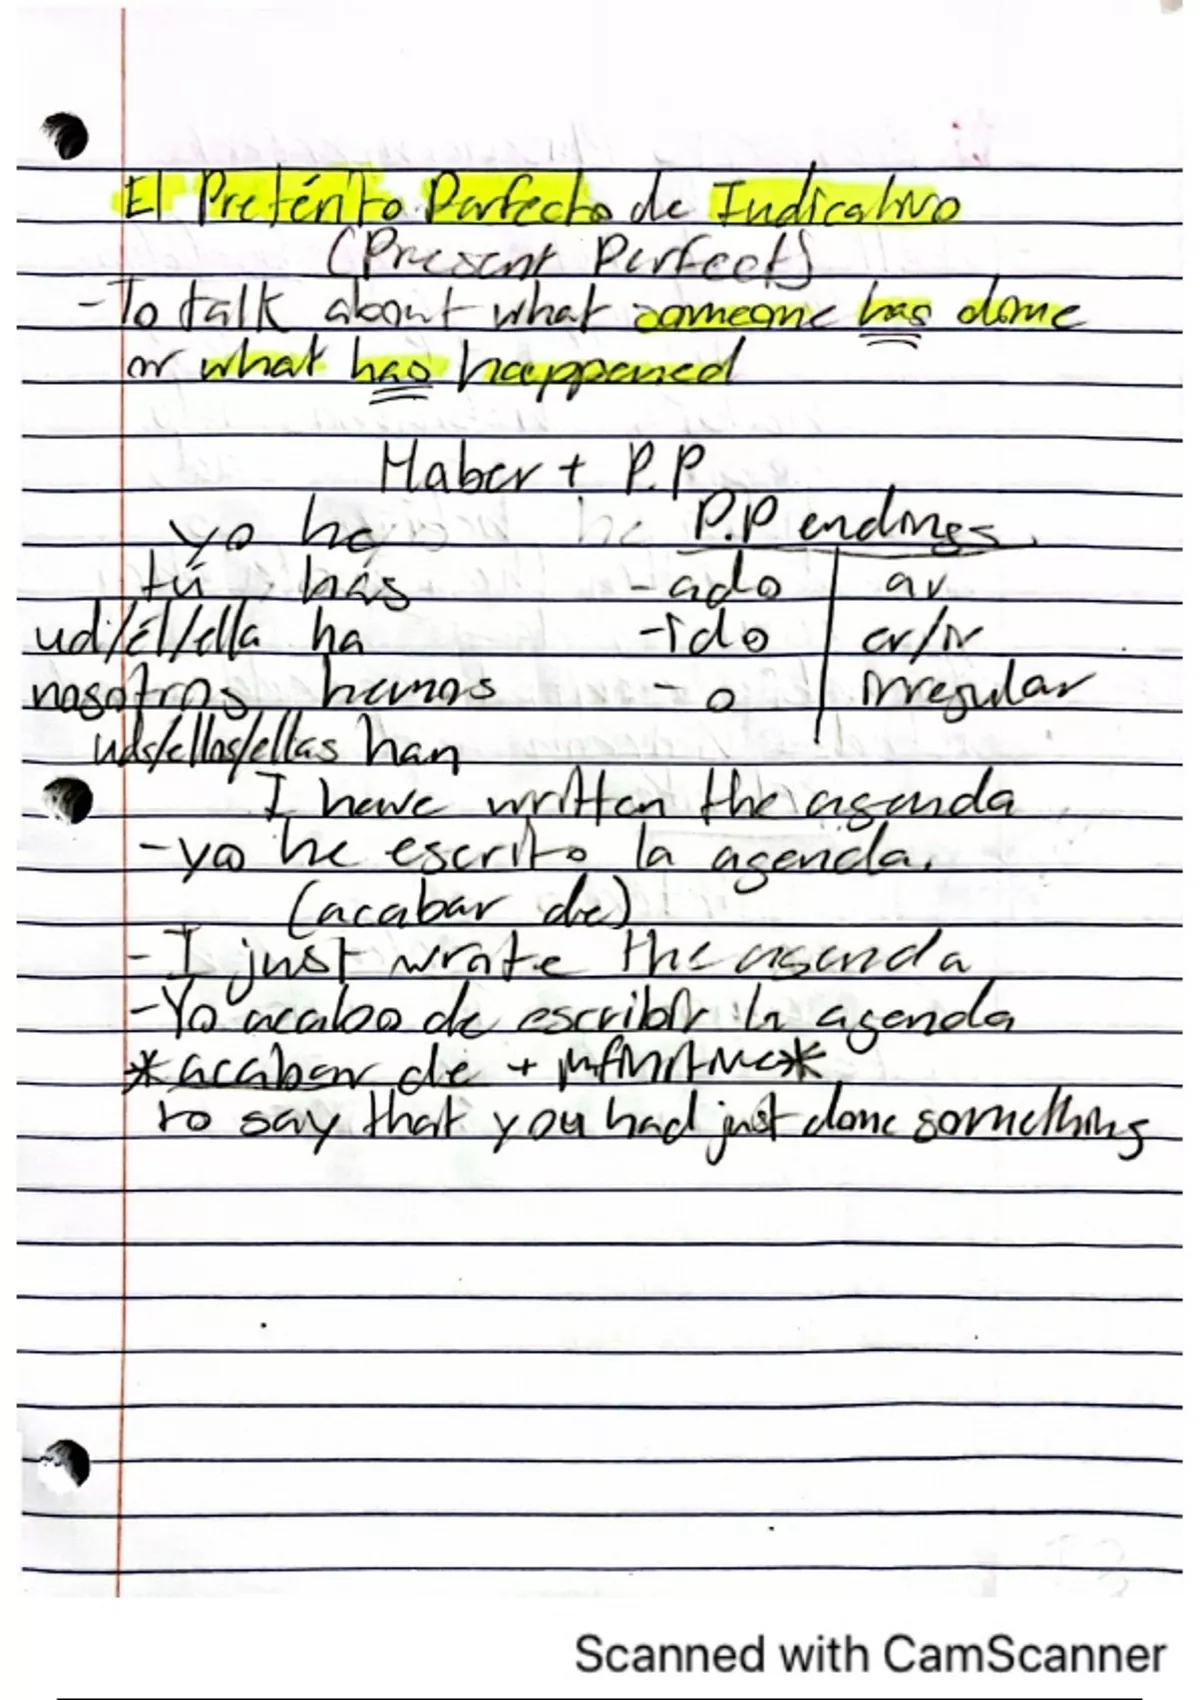 El Pretérito Perfecto de Indicativo
(Present Perfect)
-To talk about what someone has done
or what has happened
Haber + P.P
yo he P.P endings
tú has -ado ar
ud/él/ella ha -ido er/ir
nosotros hemos -o irregular
uds/ellos/ellas han
I have written the agenda
-yo he escrito la agenda.
(acabar de)
-I just wrote the agenda
-Yo acabo de escribir la agenda
*acabar de + infinitive*
to say that you had just done something
Scanned with CamScanner